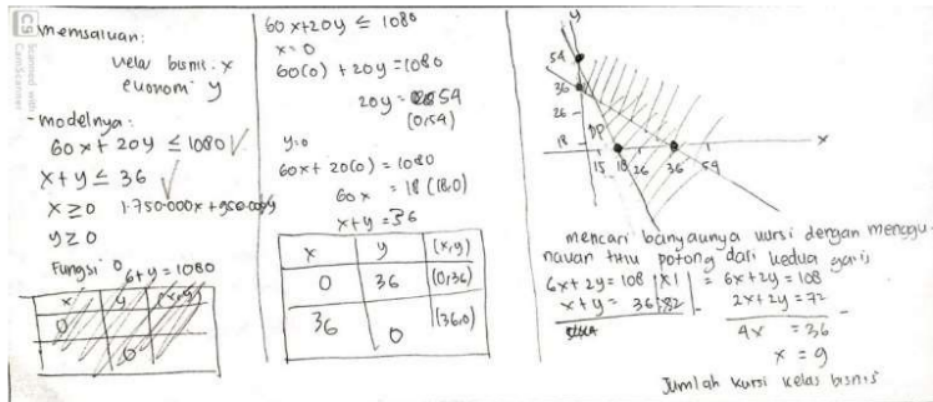 CS Scanned with CamScanner
memsaluan:
kelas bisnis: x
ekonomi y
- modelnya:
60x + 20y ≤ 1080 ✓
x + y ≤ 36 ✓
x ≥ 0 1.750.000x + 950.000y
y ≥ 0
Fungsi 0
6 + y = 1080
x y (x,y)
0
0
60x + 20y ≤ 1080
x = 0
60(0) + 20y = 1080
20y = 54
(0,54)
y = 0
60x + 20(0) = 1080
60x = 18 (18,0)
x + y = 36
x y (x,y)
0 36 (0,36)
36 0 (36,0)
y
54
36
26
18 DP
x
15 18 26 36 54
mencari banyaknya kursi dengan menggu-
nakan titik potong dari kedua garis
6x + 2y = 108 |x1| = 6x + 2y = 108
x + y = 36 |x2| - 2x + 2y = 72 -
4x = 36
x = 9
Jumlah kursi kelas bisnis